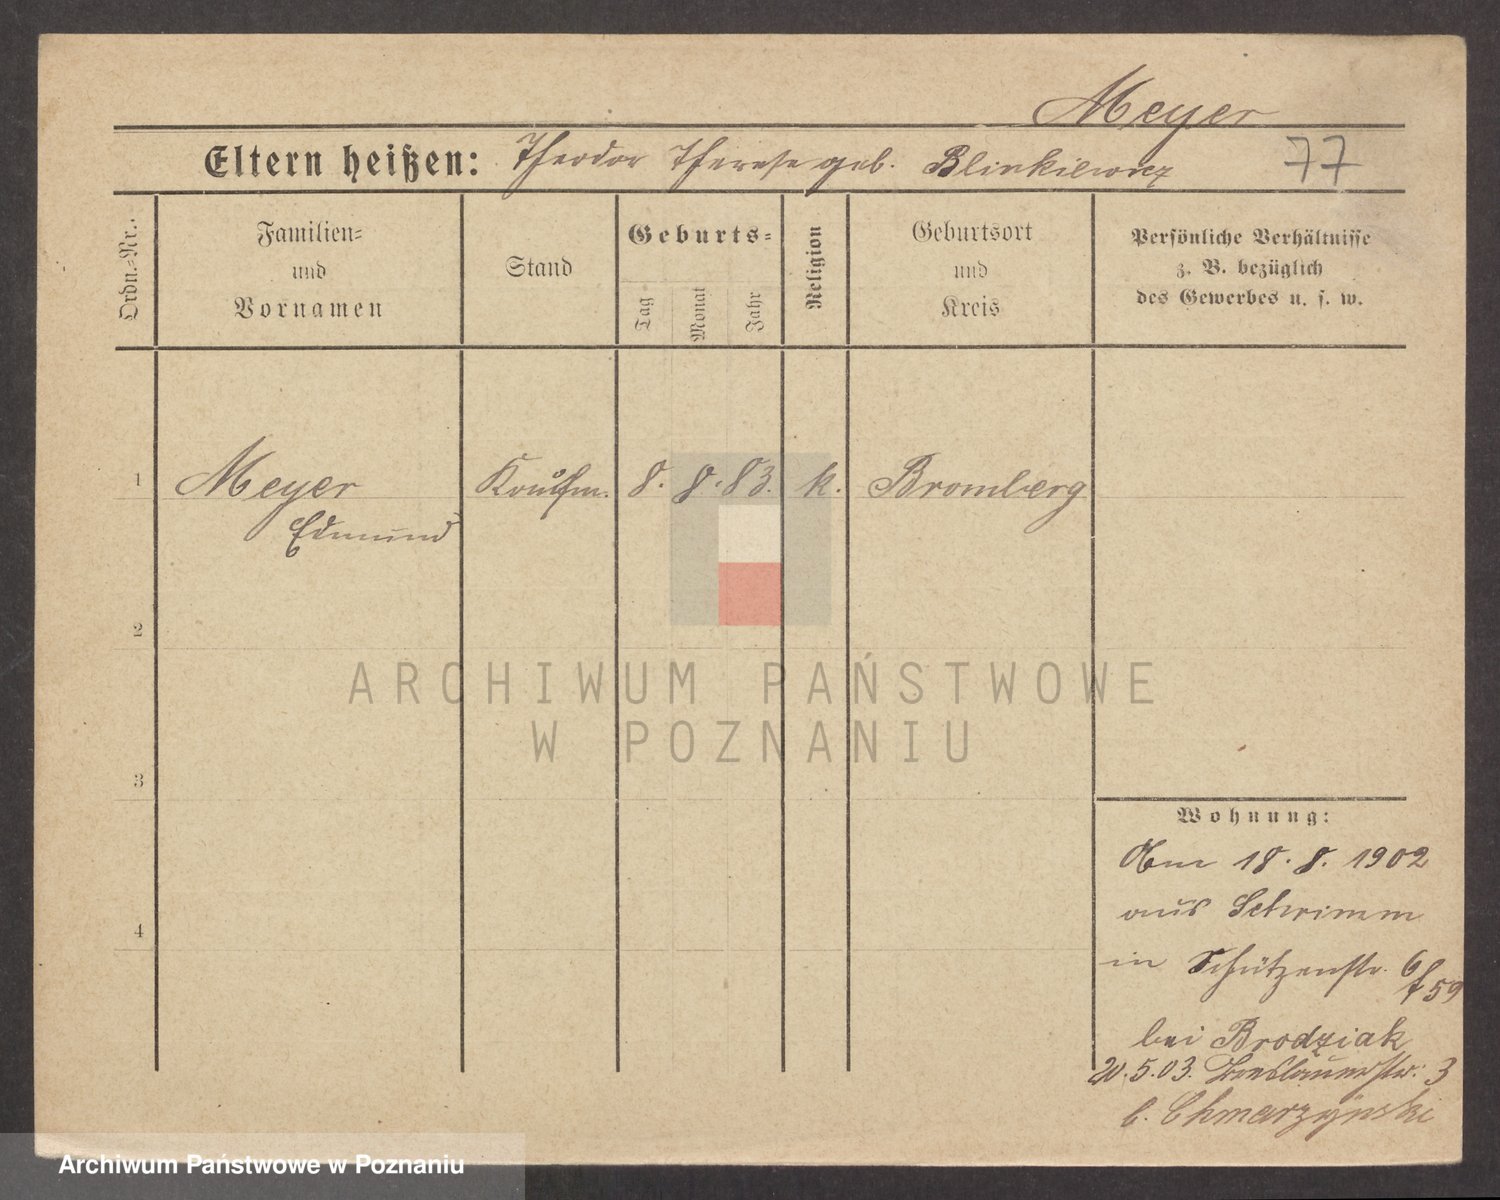 Meyer
Eltern heißen: Theodor Therese geb. Blinkiewicz 77
Ordn.=Nr.
Familien=
und
Vornamen
Stand
Geburts=
Tag
Monat
Jahr
Religion
Geburtsort
und
Kreis
Persönliche Verhältnisse
z. B. bezüglich
des Gewerbes u. s. w.
1 Meyer Kaufm. 8. 8. 83. k. Bromberg
Edmund
2
3
4
Wohnung:
Am 18. 8. 1902
aus Schrimm
in Schützenstr. 6
bei Brodziak
20.5.03. Breslauerstr. 3
b. Chmarzynski
ARCHIWUM PAŃSTWOWE
W POZNANIU
Archiwum Państwowe w Poznaniu